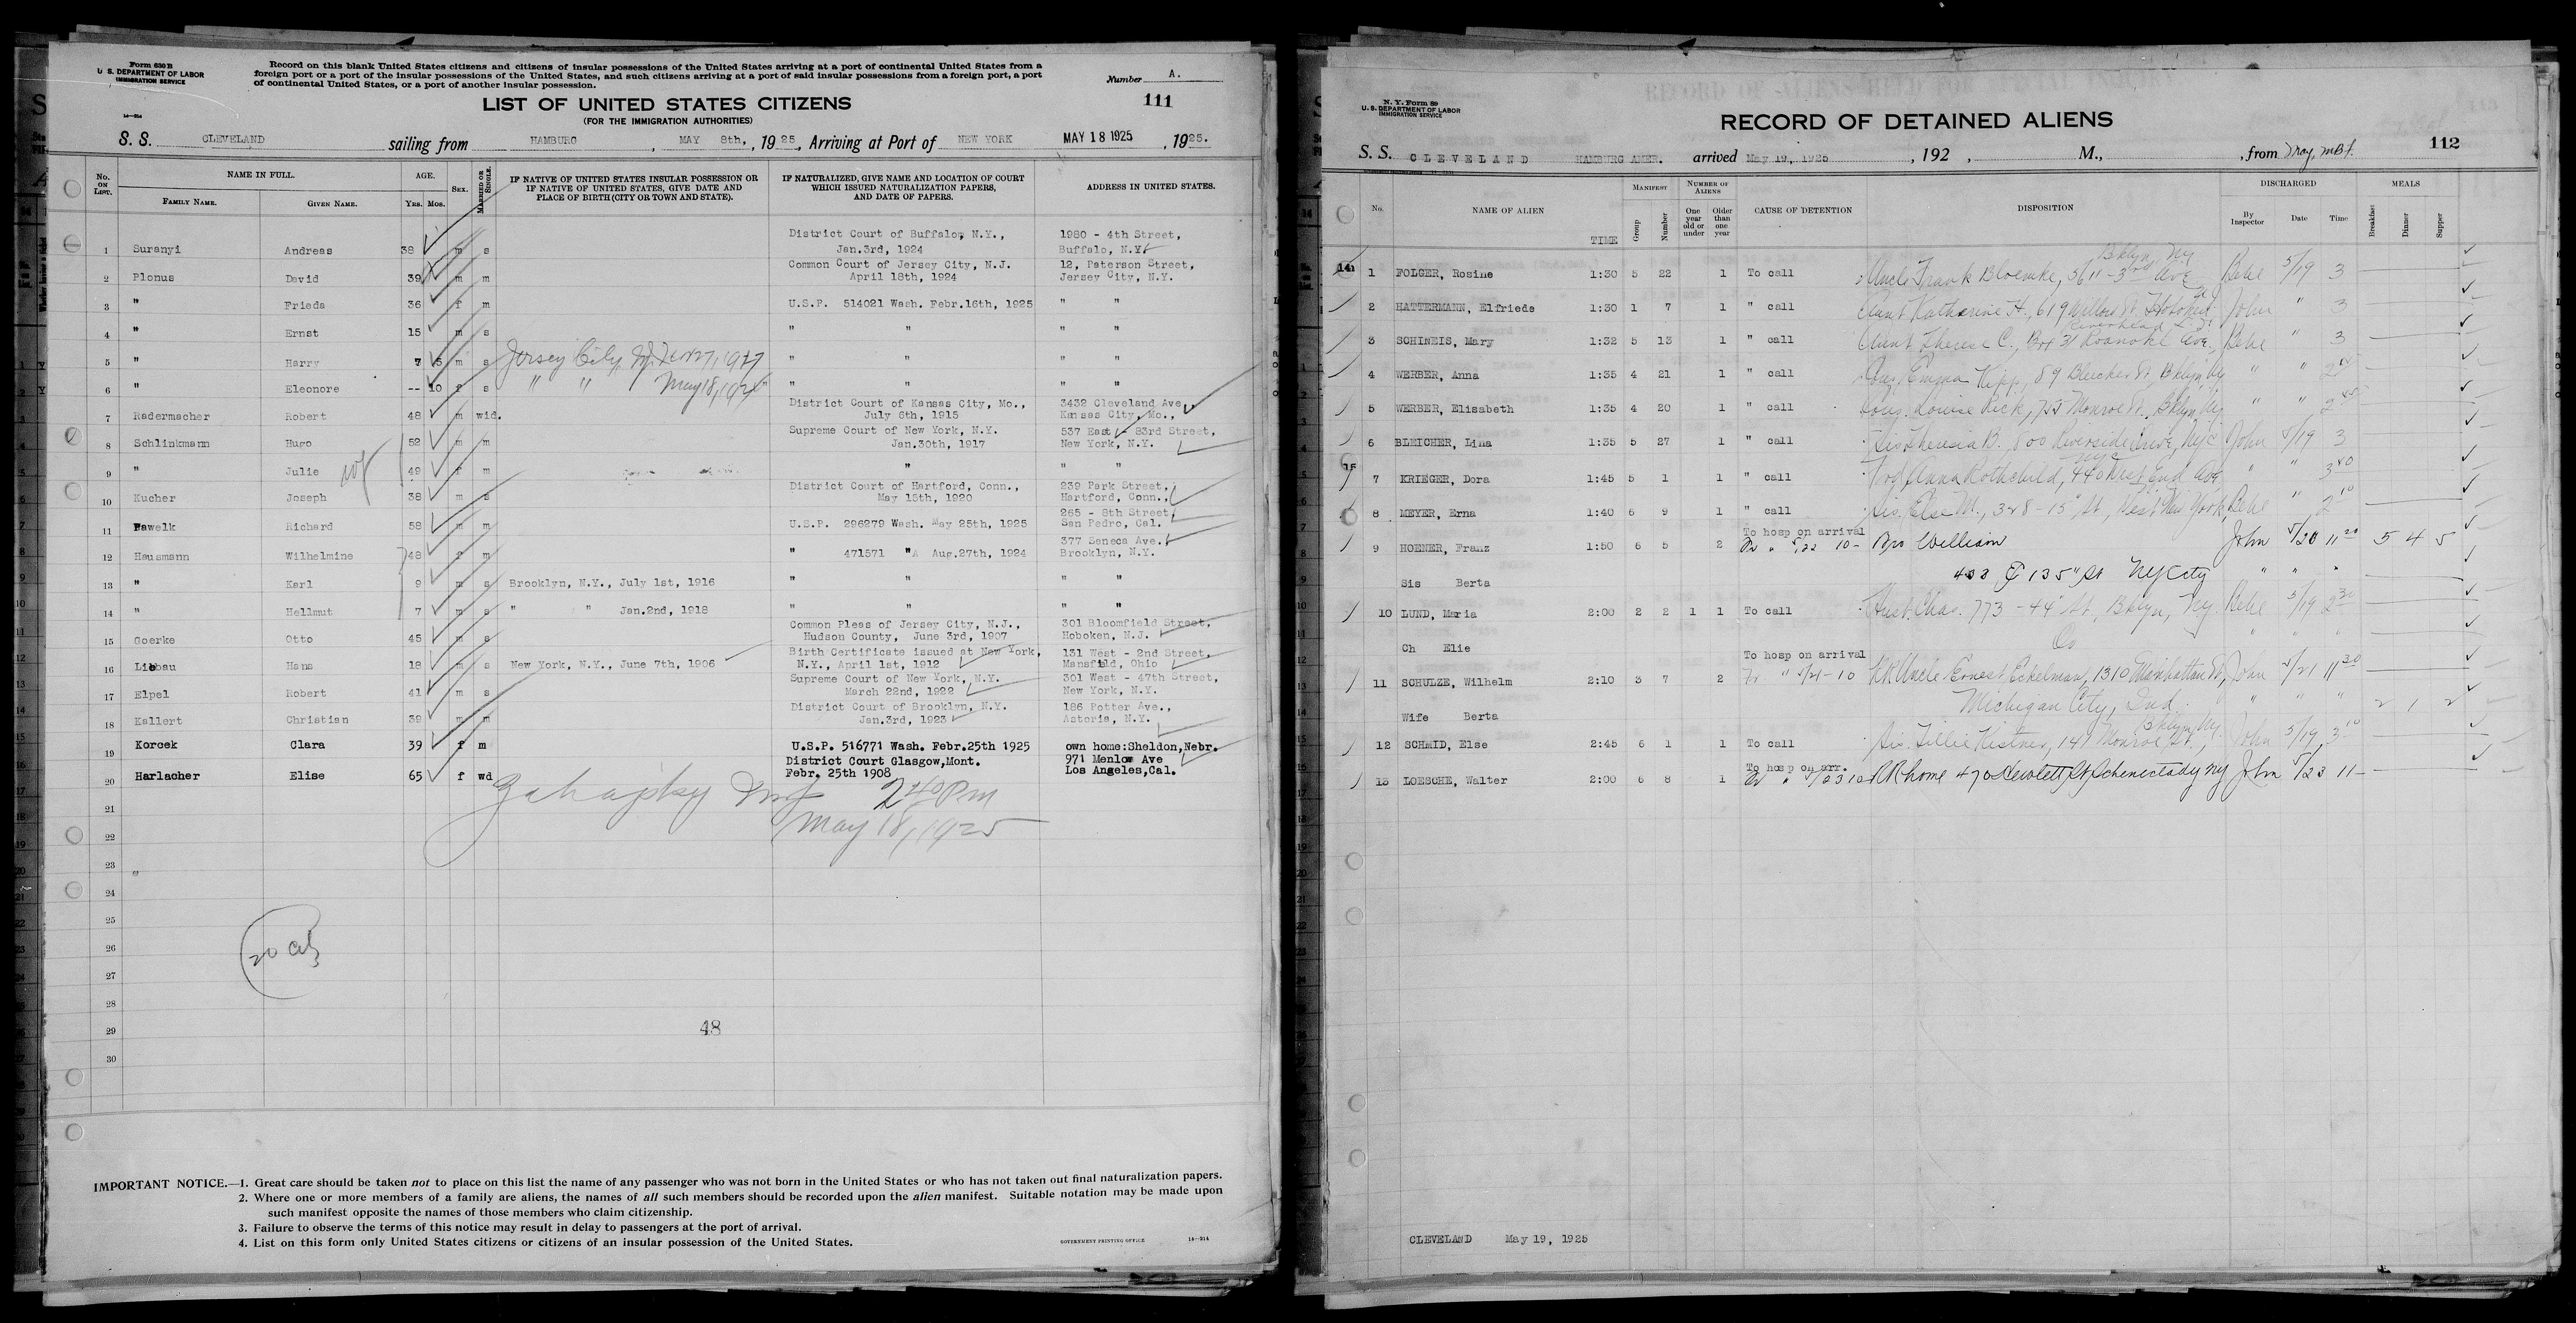 Form 630 B
U. S. DEPARTMENT OF LABOR
IMMIGRATION SERVICE
Record on this blank United States citizens and citizens of insular possessions of the United States arriving at a port of continental United States from a
foreign port or a port of the insular possessions of the United States, and such citizens arriving at a port of said insular possessions from a foreign port, a port
of continental United States, or a port of another insular possession.
Number A.
111
LIST OF UNITED STATES CITIZENS
(FOR THE IMMIGRATION AUTHORITIES)
S. S. CLEVELAND sailing from HAMBURG, MAY 8th, 1925, Arriving at Port of NEW YORK MAY 18 1925, 1925.
No. ON LIST. NAME IN FULL. AGE. SEX. MARRIED OR SINGLE. IF NATIVE OF UNITED STATES INSULAR POSSESSION OR IF NATIVE OF UNITED STATES, GIVE DATE AND PLACE OF BIRTH (CITY OR TOWN AND STATE). IF NATURALIZED, GIVE NAME AND LOCATION OF COURT WHICH ISSUED NATURALIZATION PAPERS, AND DATE OF PAPERS. ADDRESS IN UNITED STATES.
FAMILY NAME. GIVEN NAME. YRS. MOS.
District Court of Buffalo, N.Y., 1980 - 4th Street,
1 Suranyi Andreas 38 m s Jan.3rd, 1924 Buffalo, N.Y.
Common Court of Jersey City, N.J. 12, Paterson Street,
2 Plonus David 39 m m April 18th, 1924 Jersey City, N.Y.
3 " Frieda 36 f m U.S.P. 514021 Wash. Febr.16th, 1925 " "
4 " Ernst 15 m s " " " "
5 " Harry 7 5 m s Jersey City, " " " "
6 " Eleonore -- 10 f s " " May 18, " " " "
District Court of Kansas City, Mo., 3432 Cleveland Ave
7 Radermacher Robert 48 m wid. July 6th, 1915 Kansas City, Mo.,
Supreme Court of New York, N.Y. 537 East - 83rd Street,
8 Schlinkmann Hugo 52 m m Jan.30th, 1917 New York, N.Y.
9 " Julie 49 f m " " "
District Court of Hartford, Conn., 239 Park Street,
10 Kucher Joseph 38 m s May 15th, 1920 Hartford, Conn.,
265 - 8th Street,
11 Pawelk Richard 58 m m U.S.P. 296279 Wash. May 25th, 1925 San Pedro, Cal.
377 Seneca Ave.
12 Hausmann Wilhelmine 48 f m " 471571 " Aug.27th, 1924 Brooklyn, N.Y.
13 " Karl 9 m s Brooklyn, N.Y., July 1st, 1916 " " " "
14 " Hellmut 7 m s " " Jan.2nd, 1918 " " " "
Common Pleas of Jersey City, N.J., 301 Bloomfield Street,
15 Goerke Otto 45 m s Hudson County, June 3rd, 1907 Hoboken, N.J.
Birth Certificate issued at New York, 131 West - 2nd Street,
16 Liebau Hans 18 m s New York, N.Y., June 7th, 1906 N.Y., April 1st, 1912 Mansfield, Ohio
Supreme Court of New York, N.Y. 301 West - 47th Street,
17 Elpel Robert 41 m s March 22nd, 1922 New York, N.Y.
District Court of Brooklyn, N.Y. 186 Potter Ave.,
18 Kallert Christian 39 m m Jan.3rd, 1923 Astoria, N.Y.
19 Korcek Clara 39 f m U.S.P. 516771 Wash. Febr.25th 1925 own home:Sheldon,Nebr.
District Court Glasgow,Mont. 971 Menlow Ave
20 Harlacher Elise 65 f wd Febr. 25th 1908 Los Angeles,Cal.
2 40 PM
21
May 18, 1925
22
23
24
25
26
27
28
29 48
30
IMPORTANT NOTICE.—1. Great care should be taken not to place on this list the name of any passenger who was not born in the United States or who has not taken out final naturalization papers.
2. Where one or more members of a family are aliens, the names of all such members should be recorded upon the alien manifest. Suitable notation may be made upon
such manifest opposite the names of those members who claim citizenship.
3. Failure to observe the terms of this notice may result in delay to passengers at the port of arrival.
4. List on this form only United States citizens or citizens of an insular possession of the United States.
GOVERNMENT PRINTING OFFICE 14—214
N. Y. Form 89
U. S. DEPARTMENT OF LABOR
IMMIGRATION SERVICE
RECORD OF DETAINED ALIENS
112
S. S. CLEVELAND HAMBURG AMER. arrived May 19, 1925, 192 , M., , from
No. NAME OF ALIEN TIME MANIFEST NUMBER OF ALIENS CAUSE OF DETENTION DISPOSITION DISCHARGED MEALS
Group Number One year old or under Older than one year By Inspector Date Time Breakfast Dinner Supper
Bklyn, NY
1 FOLGER, Rosine 1:30 5 22 1 To call Uncle Frank Bloemke, 5611 - 3rd Ave 5/19 3
2 HATTERMANN, Elfriede 1:30 1 7 1 " call Aunt Katherine H., 619 Willow St Hoboken John " 3
Riverhead L. I.
3 SCHINEIS, Mary 1:32 5 13 1 " call Aunt Therese C., Box 31 Roanoke Ave., " 3
4 WERBER, Anna 1:35 4 21 1 " call Emma Kipp, 89 Bleecker St, Bklyn NY " "
5 WERBER, Elisabeth 1:35 4 20 1 " call Louise Rick, 755 Monroe St., Bklyn NY " "
6 BLEICHER, Lina 1:35 5 27 1 " call Sis Theresia B. 800 Riverside Drive, NYC John 5/19 3
NYC
7 KRIEGER, Dora 1:45 5 1 1 " call Anna Rothschild, 440 West End Ave " "
8 MEYER, Erna 1:40 6 9 1 " call Sis. Else M., 328 - 15" St, West New York, " 2 10
To hosp on arrival
9 HOENER, Franz 1:50 6 5 2 Bro William John 11 20 5 4 5
Sis Berta 403 E 135" St NY City " " "
10 LUND, Maria 2:00 2 2 1 1 To call Husb. Chas. 773 - 44" St, Bklyn, NY. 5/19 2 30
Ch Elie " " "
To hosp on arrival
11 SCHULZE, Wilhelm 2:10 3 7 2 RR Uncle Ernest Eckelman, 1310 Manhattan St, John 5/21 11 30
Wife Berta Michigan City, Ind. " " " 2 1 2
Bklyn, NY.
12 SCHMID, Else 2:45 6 1 1 To call Sis. Tillie Kistner, 147 Monroe St., John 5/19 3 10
To hosp on arr.
13 LOESCHE, Walter 2:00 6 8 1 RR home 470 Hewlett St Schenectady NY John 5/23 11-
CLEVELAND May 19, 1925